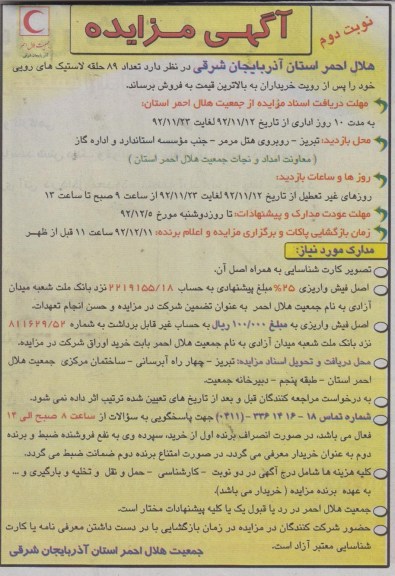 نوبت دوم
آگهی مزایده
هلال احمر استان آذربایجان شرقی در نظر دارد تعداد ۸۹ حلقه لاستیک های رویی
خود را پس از رویت خریداران به بالاترین قیمت به فروش برساند.
مهلت دریافت اسناد مزایده از جمعیت هلال احمر استان:
به مدت ۱۰ روز اداری از تاریخ ۹۲/۱۱/۱۲ لغایت ۹۲/۱۱/۲۳
محل بازدید: تبریز - روبروی هتل مرمر - جنب مؤسسه استاندارد و اداره گاز
( معاونت امداد و نجات جمعیت هلال احمر استان )
روز ها و ساعات بازدید:
روزهای غیر تعطیل از تاریخ ۹۲/۱۱/۱۲ لغایت ۹۲/۱۱/۲۳ از ساعت ۹ صبح تا ساعت ۱۳
مهلت عودت مدارک و پیشنهادات: تا روزدوشنبه مورخ ۹۲/۱۲/۵
زمان بازگشایی پاکات و برگزاری مزایده و اعلام برنده: ۹۲/۱۲/۱۱ ساعت ۱۱ قبل از ظهر
مدارک مورد نیاز:
تصویر کارت شناسایی به همراه اصل آن.
اصل فیش واریزی ۲۵% مبلغ پیشنهادی به حساب ۲۲۱۹۱۵۵/۱۸ نزد بانک ملت شعبه میدان
آزادی به نام جمعیت هلال احمر به عنوان تضمین شرکت در مزایده و حسن انجام تعهدات.
اصل فیش واریزی به مبلغ ۱۰۰/۰۰۰ ریال به حساب غیر قابل برداشت به شماره ۸۱۱۶۲۹/۵۲
نزد بانک ملت شعبه میدان آزادی به نام جمعیت هلال احمر بابت خرید اوراق شرکت در مزایده.
محل دریافت و تحویل اسناد مزایده: تبریز - چهار راه آبرسانی - ساختمان مرکزی جمعیت هلال
احمر استان - طبقه پنجم - دبیرخانه جمعیت.
به درخواست مراجعه کنندگان قبل و بعد از تاریخ های تعیین شده ترتیب اثر داده نمی شود.
شماره تماس ۱۸ - ۱۶ ۱۴ ۳۳۶ - (۰۴۱۱) جهت پاسخگویی به سؤالات از ساعت ۸ صبح الی ۱۴
فعال می باشد، در صورت انصراف برنده اول از خرید، سپرده وی به نفع فروشنده ضبط و برنده
دوم به عنوان خریدار معرفی می گردد. در صورت امتناع برنده دوم ضمانت ضبط می گردد.
کلیه هزینه ها شامل درج آگهی در دو نوبت - کارشناسی - حمل و نقل و تخلیه و بارگیری و ...
به عهده برنده مزایده ( خریدار می باشد).
جمعیت هلال احمر در رد یا قبول یک یا کلیه پیشنهادات مختار است.
حضور شرکت کنندگان در مزایده در زمان بازگشایی با در دست داشتن معرفی نامه یا کارت
شناسایی معتبر آزاد است.
جمعیت هلال احمر استان آذربایجان شرقی